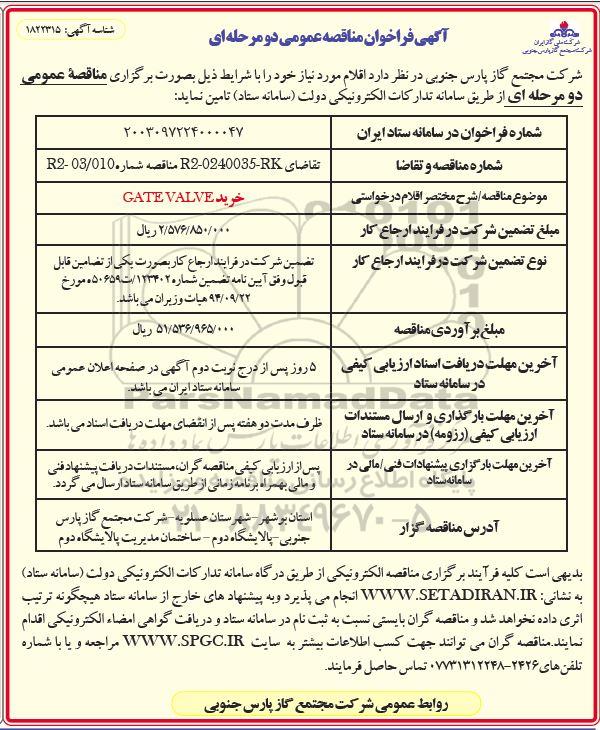 شناسه آگهی: ۱۸۲۲۳۱۵
شرکت ملی گاز ایران
شرکت مجتمع گاز پارس جنوبی
آگهی فراخوان مناقصه عمومی دو مرحله ای
شرکت مجتمع گاز پارس جنوبی در نظر دارد اقلام مورد نیاز خود را با شرایط ذیل بصورت برگزاری مناقصهٔ عمومی
دو مرحله ای از طریق سامانه تدارکات الکترونیکی دولت (سامانه ستاد) تامین نماید:
شماره فراخوان در سامانه ستاد ایران
۲۰۰۳۰۹۷۲۲۴۰۰۰۰۴۷
شماره مناقصه و تقاضا
تقاضای R2-0240035-RK مناقصه شماره R2- 03/010
موضوع مناقصه/شرح مختصر اقلام درخواستی
خرید GATE VALVE
مبلغ تضمین شرکت در فرایند ارجاع کار
۲/۵۷۶/۸۵۰/۰۰۰ ریال
نوع تضمین شرکت در فرایند ارجاع کار
تضمین شرکت در فرایند ارجاع کار بصورت یکی از تضامین قابل
قبول وفق آیین نامه تضمین شماره ۱۲۳۴۰۲/ت۵۰۶۵۹ه مورخ
۹۴/۰۹/۲۲ هیات وزیران می باشد.
مبلغ برآوردی مناقصه
۵۱/۵۳۶/۹۶۵/۰۰۰ ریال
آخرین مهلت دریافت اسناد ارزیابی کیفی
در سامانه ستاد
۵ روز پس از درج نوبت دوم آگهی در صفحه اعلان عمومی
سامانه ستاد ایران می باشد.
آخرین مهلت بارگذاری و ارسال مستندات
ارزیابی کیفی (رزومه) در سامانه ستاد
ظرف مدت دو هفته پس از انقضای مهلت دریافت اسناد می باشد.
آخرین مهلت بارگزاری پیشنهادات فنی/مالی در
سامانه ستاد
پس از ارزیابی کیفی مناقصه گران، مستندات دریافت پیشنهاد فنی
و مالی بهمراه برنامه زمانی از طریق سامانه ستاد ارسال می گردد.
آدرس مناقصه گزار
استان بوشهر - شهرستان عسلویه - شرکت مجتمع گاز پارس
جنوبی - پالایشگاه دوم - ساختمان مدیریت پالایشگاه دوم
بدیهی است کلیه فرآیند برگزاری مناقصه الکترونیکی از طریق درگاه سامانه تدارکات الکترونیکی دولت (سامانه ستاد)
به نشانی: WWW.SETADIRAN.IR انجام می پذیرد وبه پیشنهاد های خارج از سامانه ستاد هیچگونه ترتیب
اثری داده نخواهد شد و مناقصه گران بایستی نسبت به ثبت نام در سامانه ستاد و دریافت گواهی امضاء الکترونیکی اقدام
نمایند.مناقصه گران می توانند جهت کسب اطلاعات بیشتر به سایت WWW.SPGC.IR مراجعه و یا با شماره
تلفن‌های ۲۴۲۶-۰۷۷۳۱۳۱۲۲۴۸ تماس حاصل فرمایند.
روابط عمومی شرکت مجتمع گاز پارس جنوبی
ParsNamadData
پایگاه اطلاع رسانی
۰۲۱-۸۸۳۴۹۶۷۰-۵